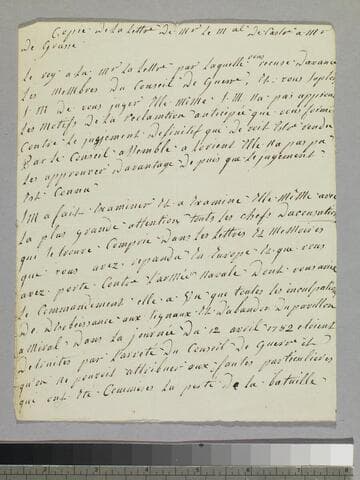 Copie de la Lettre de Mr le M al de Castri a Mr
de Grasse
Le roy a la Mr la Lettre par laquelle vous recuse davance
Les Membres du Conseil de Guerre, Et vous suplez
S M de vous juger Elle même. S. M. Na pas approuvé
Les motifs de la reclamation anticipée que vous formez
Contre le jugement definitif que devoit Etre rendu
Par le Conseil assemblé a Lorient Elle Na pas pu
Les approuver davantage depuis que le jugement
Est Connu
S M a fait Examiner Et a Examiné Elle Même avec
La plus grande attention touts les chefs daccusation
qui se trouve Compris Dans les Lettres Et Memoires
que vous avez repandu En Europe Et que vous
avez porté Contre Larmée Navale Dont vous avez
Le Commandement. elle a Vu que toutes les inculpations
De Desobeissance aux signaux Et Dabandon Dupavillon
amiral Dans la journée du 12 avril 1782 etoient
Detruites par Larreté du Conseil de Guerre Et
qu'on ne pouvoit attribuer aux fautes particulieres
que ont Eté Commises la perte de la bataille